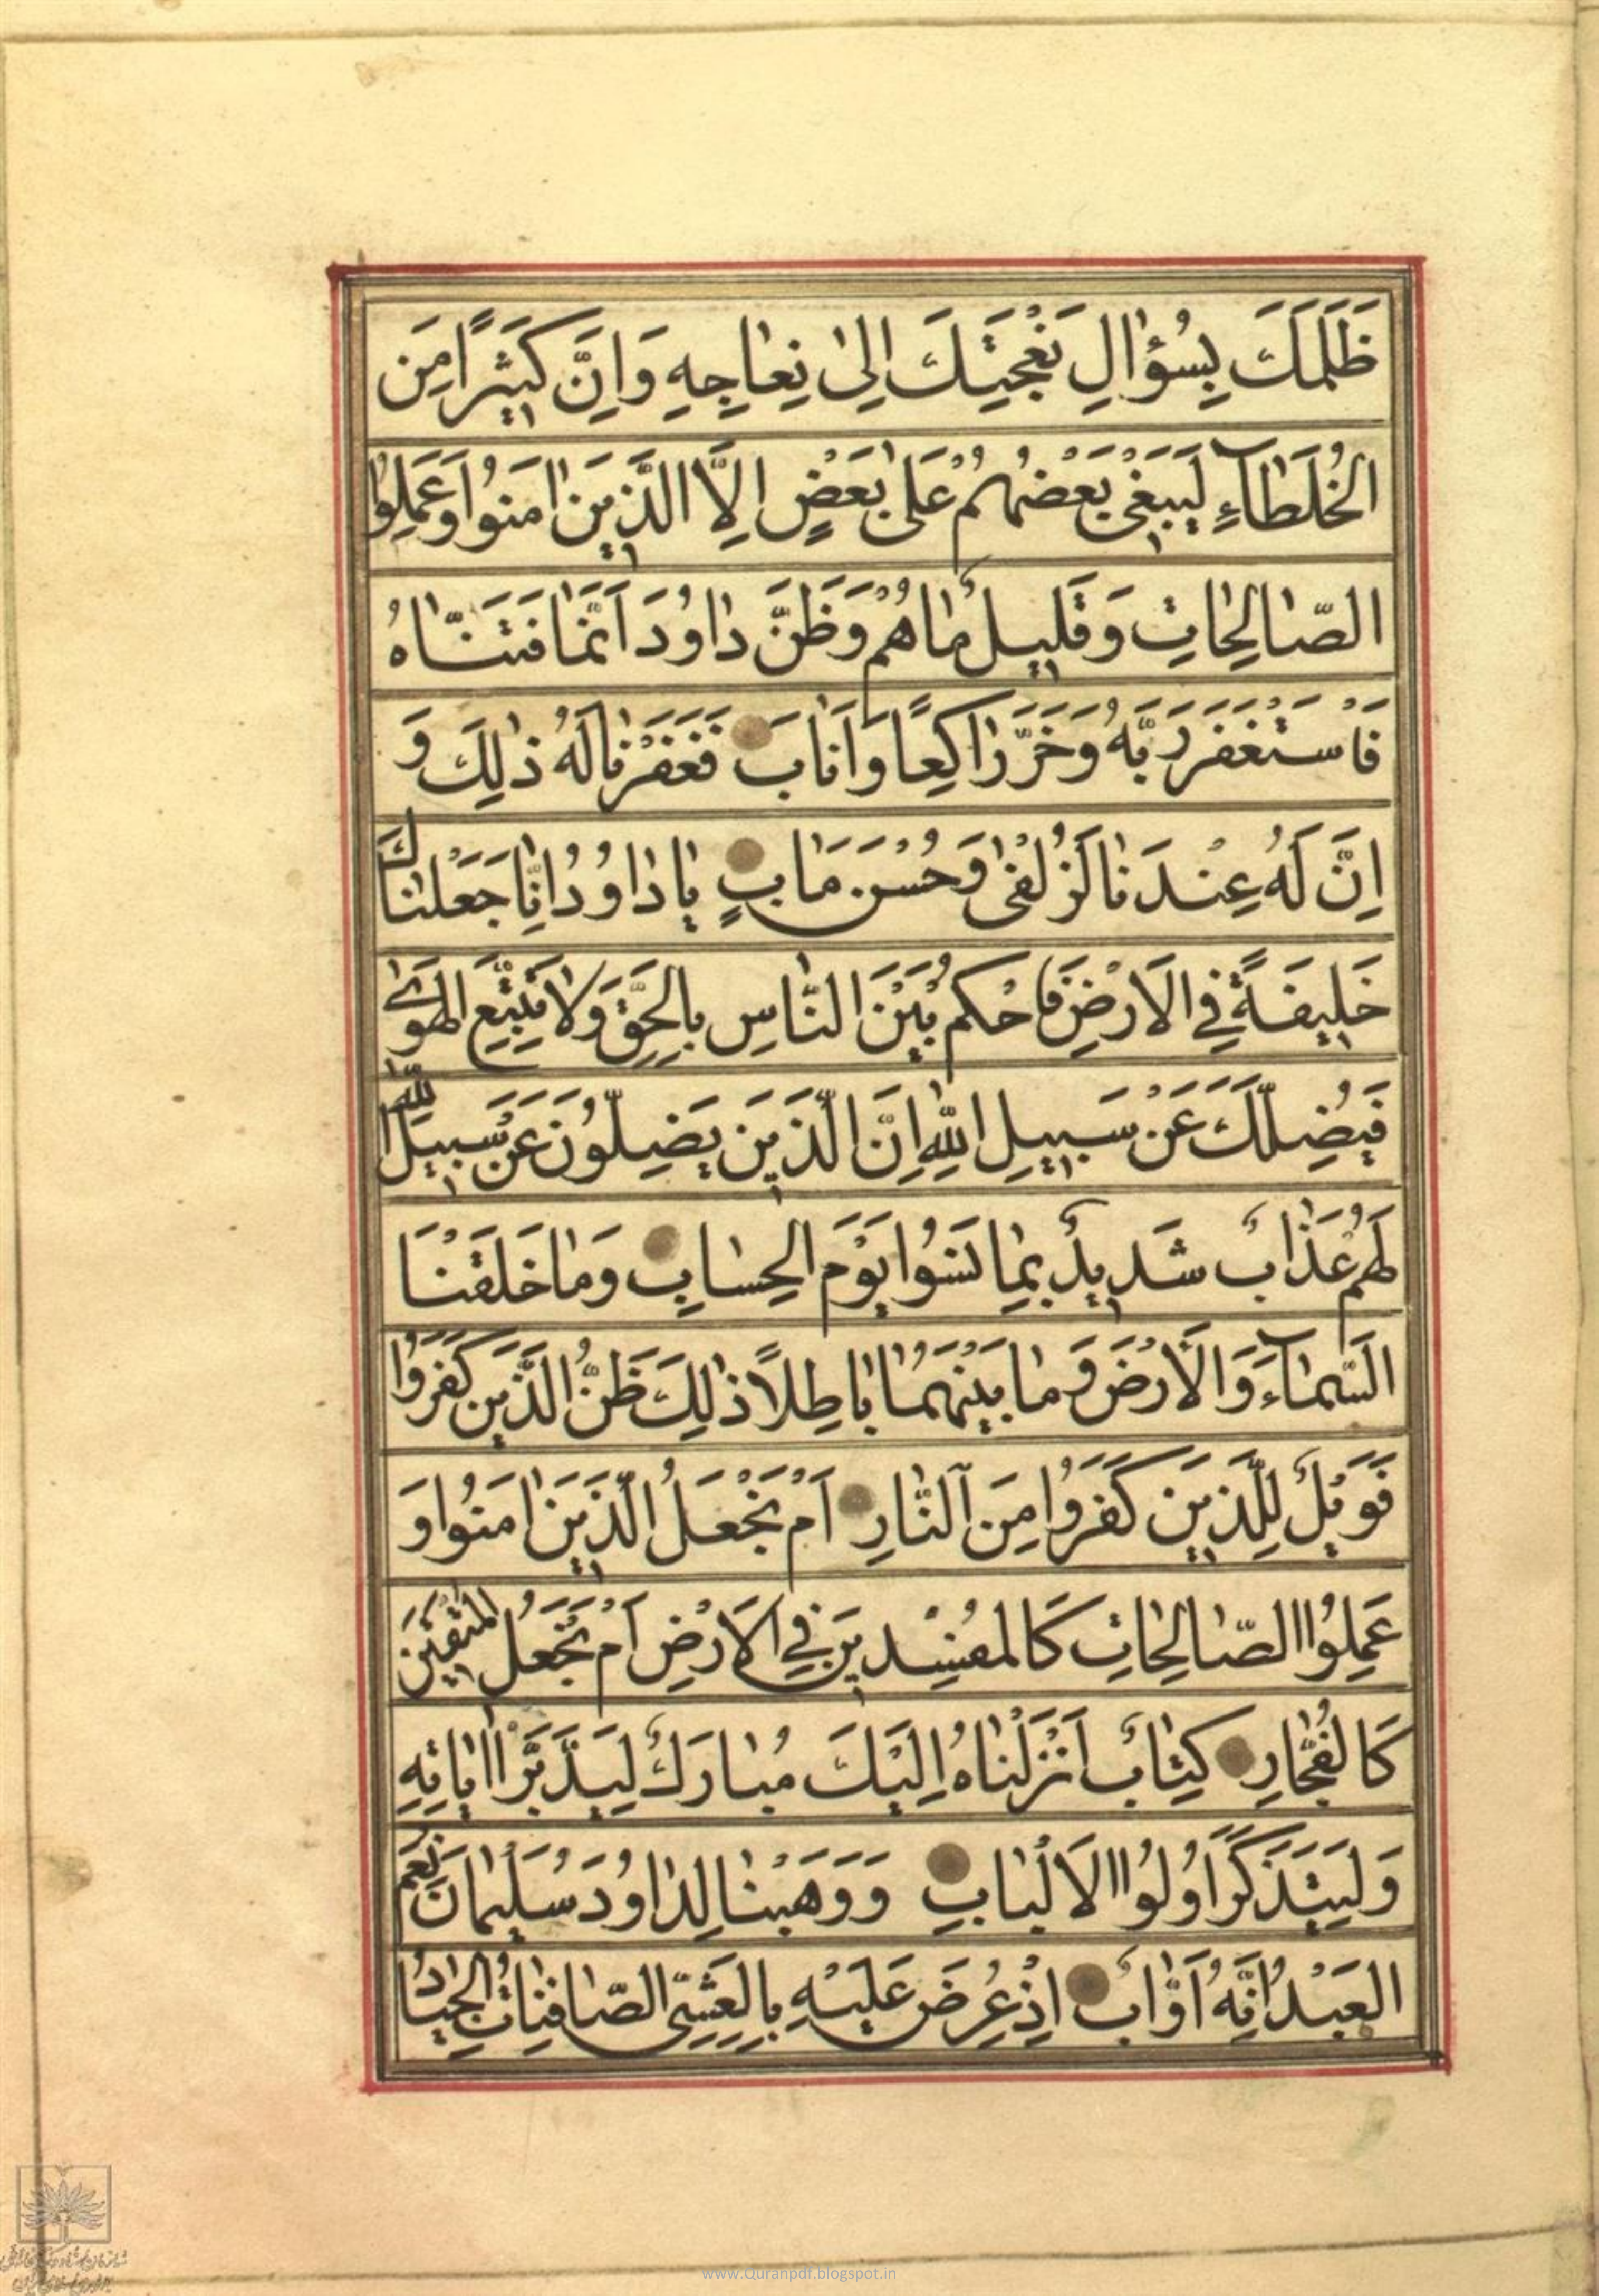 ظَلَمَكَ بِسُؤالِ نَعْجَتِكَ اِلىٰ نِعاجِهِ وَاِنَّ كَثيرًا مِنَ
الْخُلَطآءِ لَيَبْغى بَعْضُهُمْ عَلىٰ بَعْضٍ اِلَّا الَّذينَ اٰمَنُوا وَعَمِلُوا
الصّالِحاتِ وَقَليلٌ ما هُمْ وَظَنَّ داوُدَ اَنَّما فَتَنّاهُ
فَاسْتَغْفَرَ رَبَّهُ وَخَرَّ راكِعًا وَاَنابَ فَغَفَرْنا لَهُ ذٰلِكَ وَ
اِنَّ لَهُ عِنْدَنا لَزُلْفىٰ وَحُسْنَ مَاٰبٍ يا داوُدُ اِنّا جَعَلْناكَ
خَليفَةً فِي الْاَرْضِ فَاحْكُمْ بَيْنَ النّاسِ بِالْحَقِّ وَلا تَتَّبِعِ الْهَوىٰ
فَيُضِلَّكَ عَنْ سَبيلِ اللّٰهِ اِنَّ الَّذينَ يَضِلُّونَ عَنْ سَبيلِ اللّٰهِ
لَهُمْ عَذابٌ شَديدٌ بِما نَسُوا يَوْمَ الْحِسابِ وَما خَلَقْنَا
السَّمآءَ وَالْاَرْضَ وَما بَيْنَهُما باطِلاً ذٰلِكَ ظَنُّ الَّذينَ كَفَرُوا
فَوَيْلٌ لِلَّذينَ كَفَرُوا مِنَ النّارِ اَمْ نَجْعَلُ الَّذينَ اٰمَنُوا وَ
عَمِلُوا الصّالِحاتِ كَالْمُفْسِدينَ فِي الْاَرْضِ اَمْ نَجْعَلُ الْمُتَّقينَ
كَالْفُجّارِ كِتابٌ اَنْزَلْناهُ اِلَيْكَ مُبارَكٌ لِيَدَّبَّرُوا اٰياتِهِ
وَلِيَتَذَكَّرَ اُولُوا الْاَلْبابِ وَوَهَبْنا لِداوُدَ سُلَيْمانَ نِعْمَ
الْعَبْدُ اِنَّهُ اَوّابٌ اِذْ عُرِضَ عَلَيْهِ بِالْعَشِيِّ الصّافِناتُ الْجِيادُ
www.Quranpdf.blogspot.in